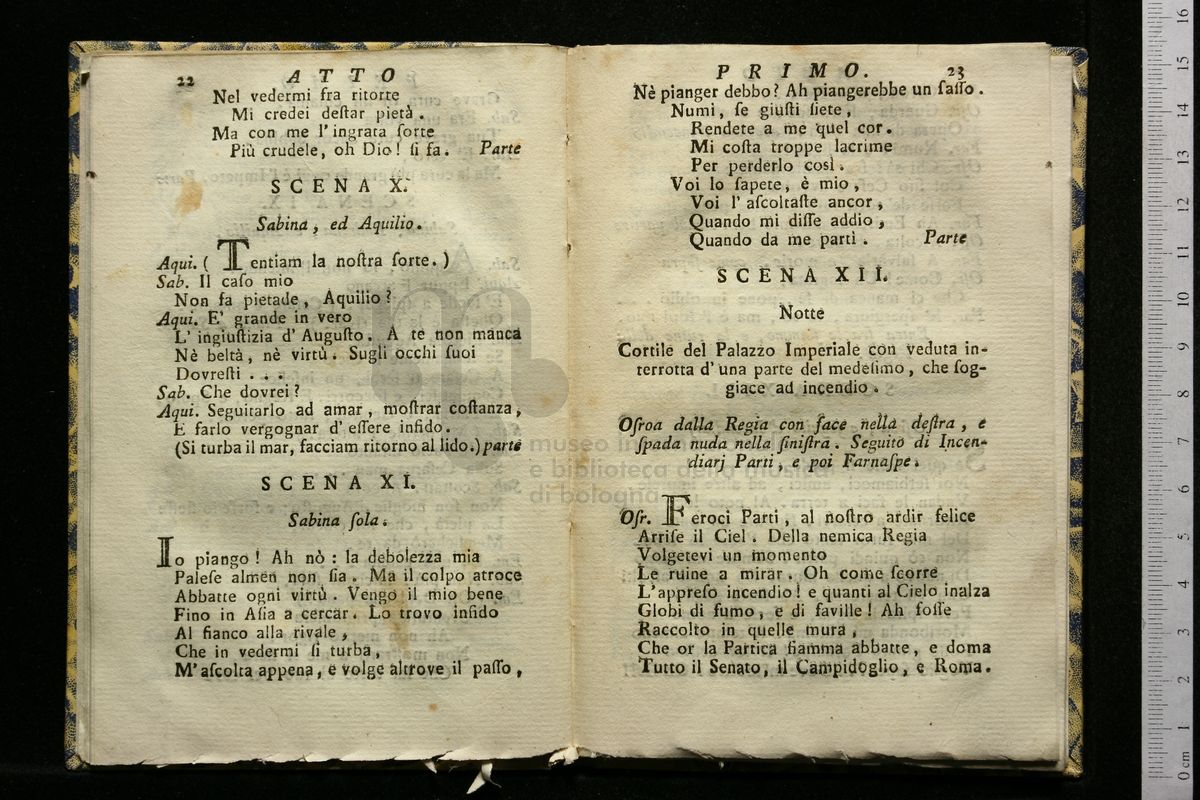 22
ATTO
Nel vedermi fra ritorte
Mi credei deſtar pietà.
Ma con me l'ingrata ſorte
Più crudele, oh Dio! ſi fa. Parte
SCENA X.
Sabina, ed Aquilio.
Aqui. (Tentiam la noſtra ſorte.)
Sab. Il caſo mio
Non fa pietade, Aquilio?
Aqui. E' grande in vero
L'ingiuſtizia d'Auguſto. A te non manca
Nè beltà, nè virtù. Sugli occhi ſuoi
Dovreſti...
Sab. Che dovrei?
Aqui. Seguitarlo ad amar, moſtrar coſtanza,
E farlo vergognar d'eſſere infido.
(Si turba il mar, facciam ritorno al lido.) parte
SCENA XI.
Sabina ſola.
Io piango! Ah nò: la debolezza mia
Paleſe almen non ſia. Ma il colpo atroce
Abbatte ogni virtù. Vengo il mio bene
Fino in Aſia a cercar. Lo trovo infido
Al fianco alla rivale,
Che in vedermi ſi turba,
M'aſcolta appena, e volge altrove il paſſo,
PRIMO.
23
Nè pianger debbo? Ah piangerebbe un ſaſſo.
Numi, ſe giuſti ſiete,
Rendete a me quel cor.
Mi coſta troppe lacrime
Per perderlo così.
Voi lo ſapete, è mio,
Voi l'aſcoltaſte ancor,
Quando mi diſſe addio,
Quando da me partì. Parte
SCENA XII.
Notte
Cortile del Palazzo Imperiale con veduta in-
terrotta d'una parte del medeſimo, che ſog-
giace ad incendio.
Oſroa dalla Regia con face nella deſtra, e
ſpada nuda nella ſiniſtra. Seguito di Incen-
diarj Parti, e poi Farnaſpe.
Oſr. Feroci Parti, al noſtro ardir felice
Arriſe il Ciel. Della nemica Regia
Volgetevi un momento
Le ruine a mirar. Oh come ſcorre
L'appreſo incendio! e quanti al Cielo inalza
Globi di fumo, e di faville! Ah foſſe
Raccolto in quelle mura,
Che or la Partica fiamma abbatte, e doma
Tutto il Senato, il Campidoglio, e Roma.
mb
museo
e biblioteca della musica
di bologna
0 cm 1 2 3 4 5 6 7 8 9 10 11 12 13 14 15 16